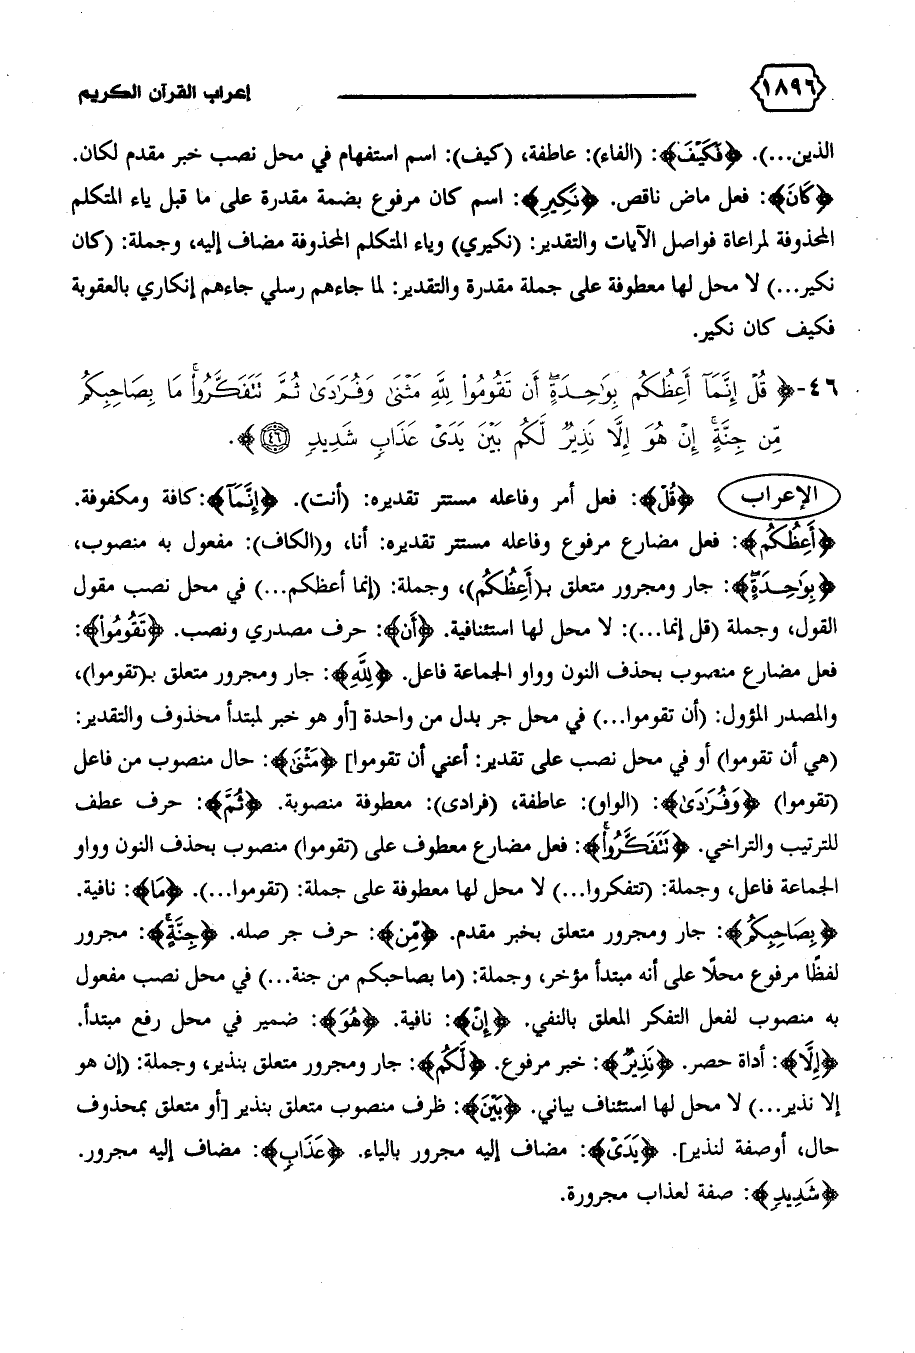 ١٨٩٦ إعراب القرآن الكريم
الذين...). ﴿فَكَيْفَ﴾: (الفاء): عاطفة، (كيف): اسم استفهام في محل نصب خبر مقدم لكان.
﴿كَانَ﴾: فعل ماض ناقص. ﴿نَكِيرِ﴾: اسم كان مرفوع بضمة مقدرة على ما قبل ياء المتكلم
المحذوفة لمراعاة فواصل الآيات والتقدير: (نكيري) وياء المتكلم المحذوفة مضاف إليه، وجملة: (كان
نكير...) لا محل لها معطوفة على جملة مقدرة والتقدير: لما جاءهم رسلي جاءهم إنكاري بالعقوبة
فكيف كان نكير.
٤٦-﴿ قُلْ إِنَّمَآ أَعِظُكُم بِوَٰحِدَةٍۖ أَن تَقُومُوا۟ لِلَّهِ مَثْنَىٰ وَفُرَٰدَىٰ ثُمَّ تَتَفَكَّرُوا۟ۚ مَا بِصَاحِبِكُم
مِّن جِنَّةٍۚ إِنْ هُوَ إِلَّا نَذِيرٌ لَّكُم بَيْنَ يَدَىْ عَذَابٍ شَدِيدٍ ٤٦﴾.
الإعراب ﴿قُلْ﴾: فعل أمر وفاعله مستتر تقديره: (أنت). ﴿إِنَّمَآ﴾: كافة ومكفوفة.
﴿أَعِظُكُم﴾: فعل مضارع مرفوع وفاعله مستتر تقديره: أنا، و(الكاف): مفعول به منصوب،
﴿بِوَٰحِدَةٍۖ﴾: جار ومجرور متعلق بـ(أَعِظُكُم)، وجملة: (إنما أعظكم...) في محل نصب مقول
القول، وجملة (قل إنما...): لا محل لها استئنافية. ﴿أَن﴾: حرف مصدري ونصب. ﴿تَقُومُوا۟﴾:
فعل مضارع منصوب بحذف النون وواو الجماعة فاعل. ﴿لِلَّهِ﴾: جار ومجرور متعلق بـ(تقوموا)،
والمصدر المؤول: (أن تقوموا...) في محل جر بدل من واحدة [أو هو خبر لمبتدأ محذوف والتقدير:
(هي أن تقوموا) أو في محل نصب على تقدير: أعني أن تقوموا] ﴿مَثْنَىٰ﴾: حال منصوب من فاعل
(تقوموا) ﴿وَفُرَٰدَىٰ﴾: (الواو): عاطفة، (فرادى): معطوفة منصوبة. ﴿ثُمَّ﴾: حرف عطف
للترتيب والتراخي. ﴿تَتَفَكَّرُوا۟ۚ﴾: فعل مضارع معطوف على (تقوموا) منصوب بحذف النون وواو
الجماعة فاعل، وجملة: (تتفكروا...) لا محل لها معطوفة على جملة: (تقوموا...). ﴿مَا﴾: نافية.
﴿بِصَاحِبِكُم﴾: جار ومجرور متعلق بخبر مقدم. ﴿مِّن﴾: حرف جر صله. ﴿جِنَّةٍۚ﴾: مجرور
لفظًا مرفوع محلًا على أنه مبتدأ مؤخر، وجملة: (ما بصاحبكم من جنة...) في محل نصب مفعول
به منصوب لفعل التفكر المعلق بالنفي. ﴿إِنْ﴾: نافية. ﴿هُوَ﴾: ضمير في محل رفع مبتدأ.
﴿إِلَّا﴾: أداة حصر. ﴿نَذِيرٌ﴾: خبر مرفوع. ﴿لَّكُم﴾: جار ومجرور متعلق بنذير، وجملة: (إن هو
إلا نذير...) لا محل لها استئناف بياني. ﴿بَيْنَ﴾: ظرف منصوب متعلق بنذير [أو متعلق بمحذوف
حال، أوصفة لنذير]. ﴿يَدَىْ﴾: مضاف إليه مجرور بالياء. ﴿عَذَابٍ﴾: مضاف إليه مجرور.
﴿شَدِيدٍ﴾: صفة لعذاب مجرورة.